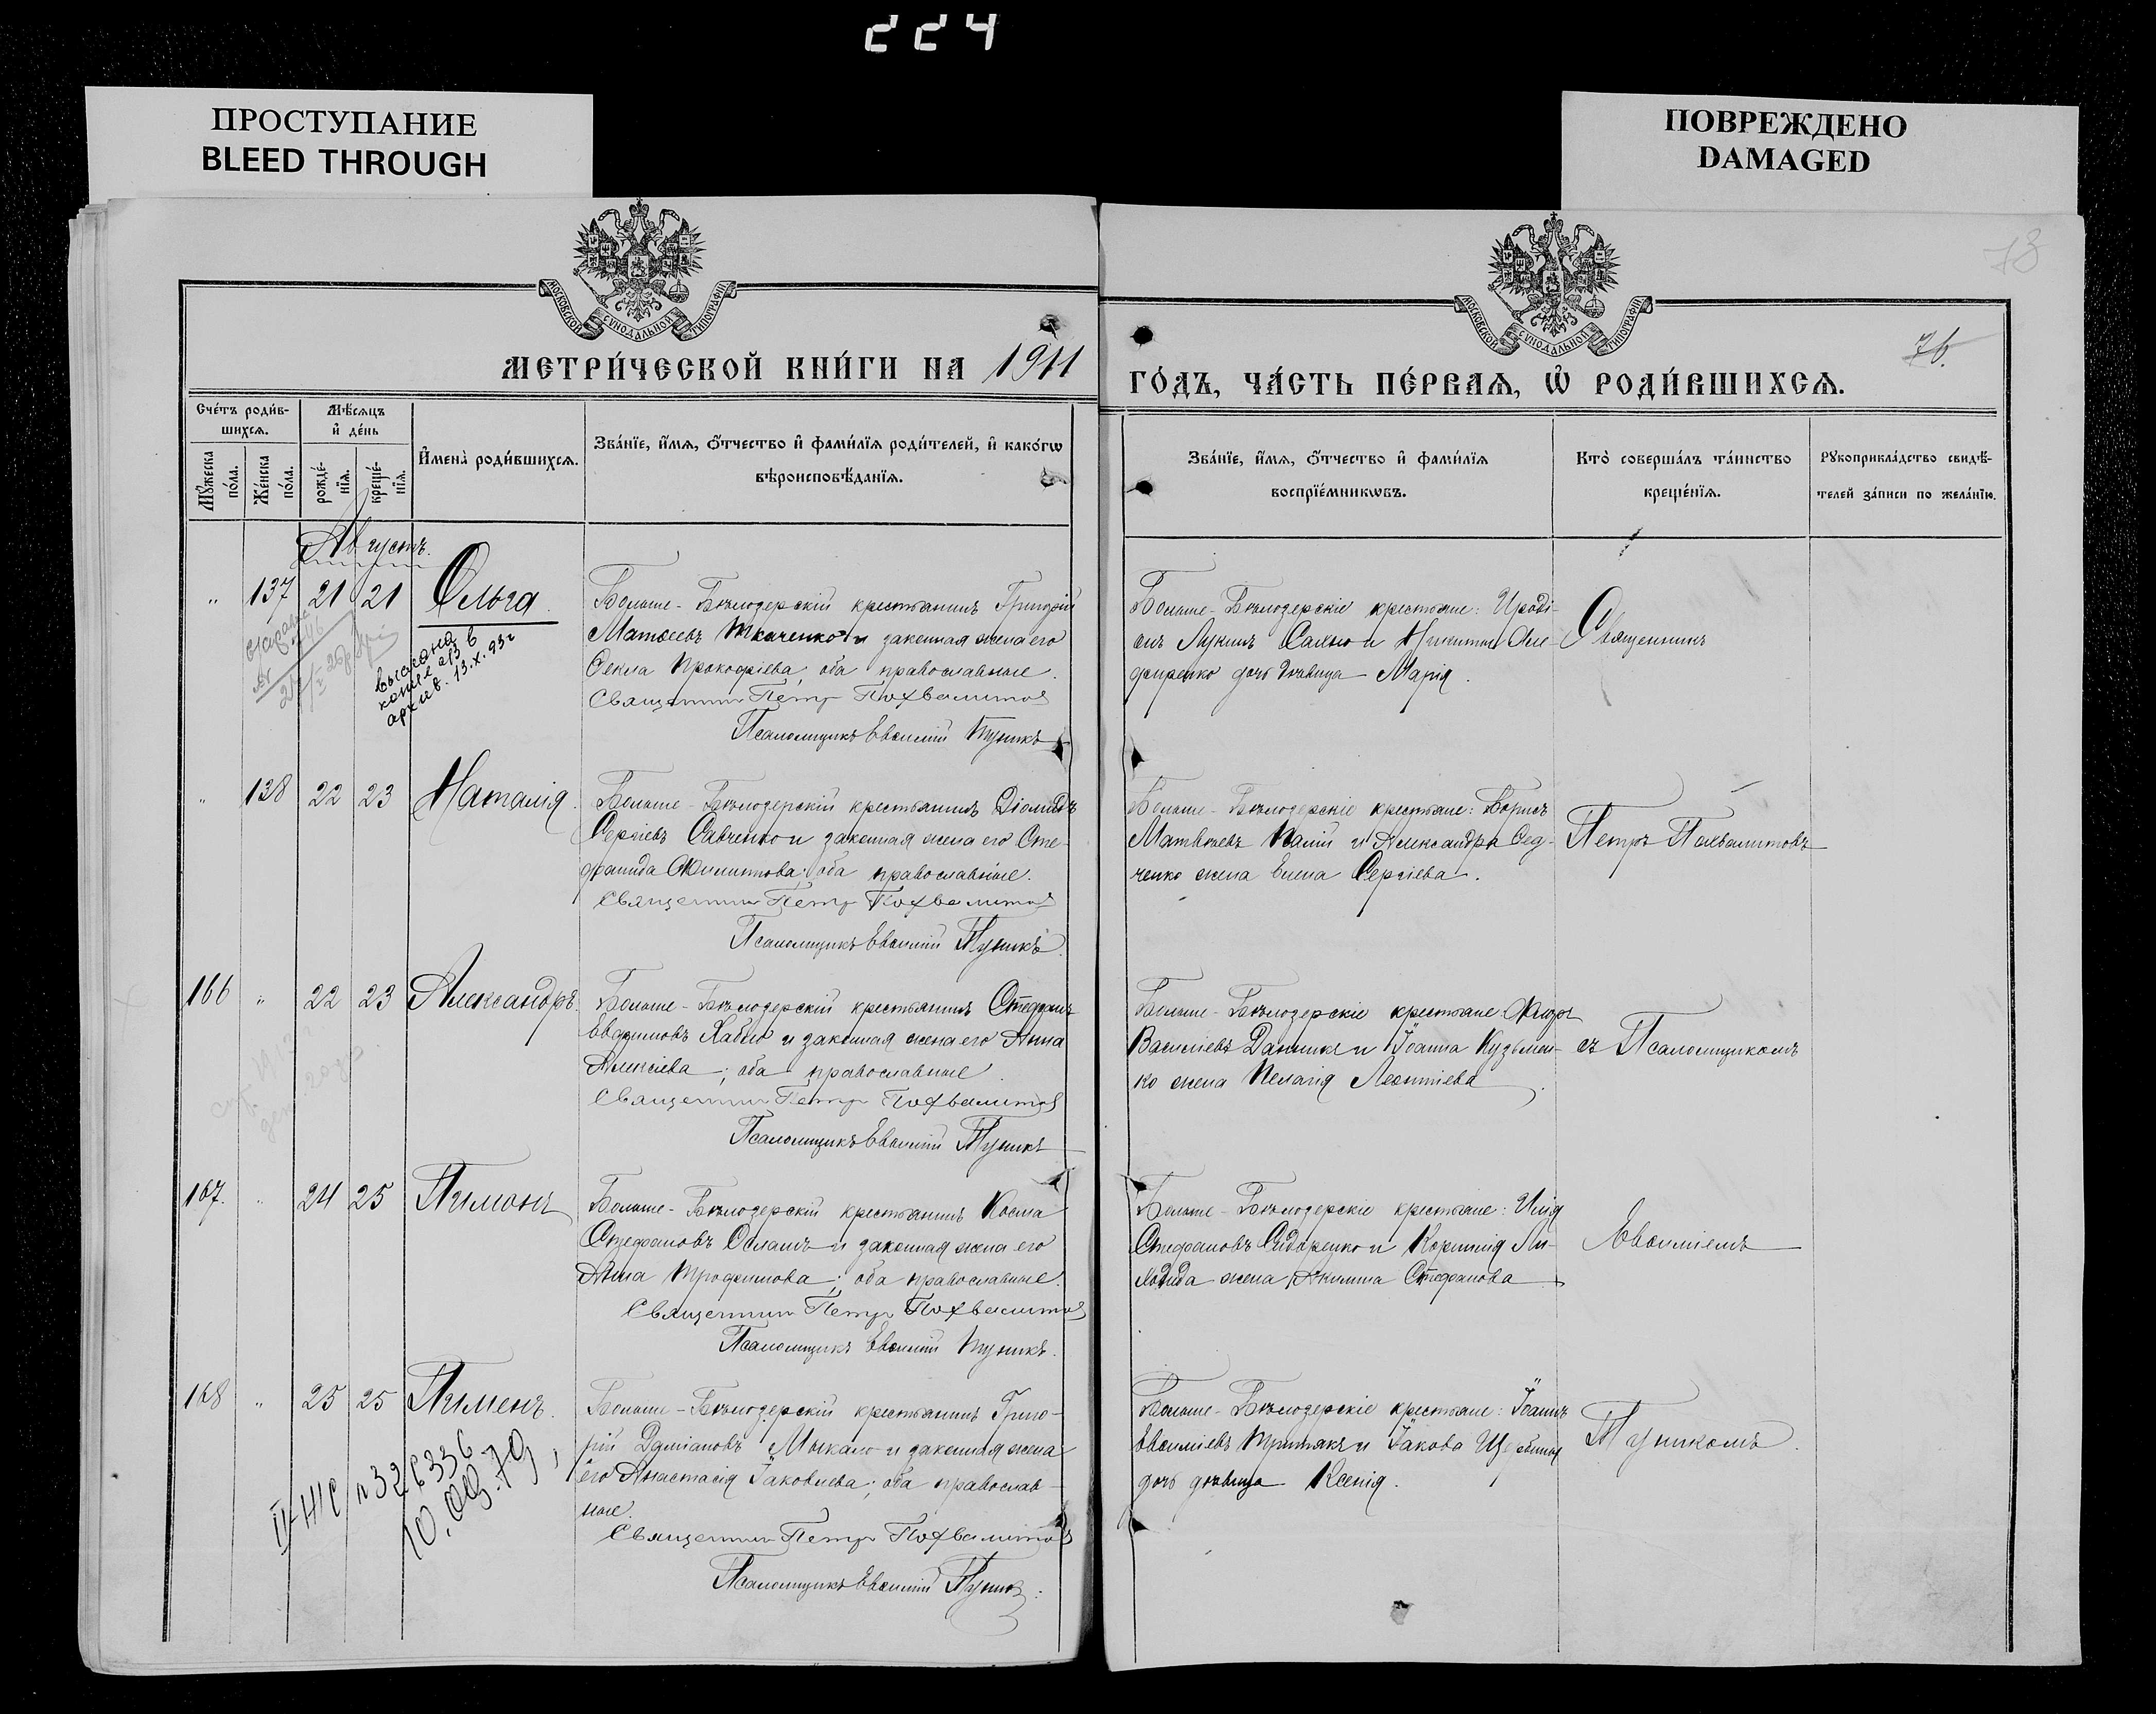 224
ПРОСТУПАНИЕ
BLEED THROUGH
ПОВРЕЖДЕНО
DAMAGED
73
76.
МОСКОВСКОЙ СѴНОДАЛЬНОЙ ТИПОГРАФІИ
МОСКОВСКОЙ СѴНОДАЛЬНОЙ ТИПОГРАФІИ
МЕТРИ́ЧЕСКОЙ КНИ́ГИ НА 1911
ГО́ДЪ, ЧА́СТЬ ПЕ́РВАЯ, Ѡ҆ РОДИ́ВШИХСЯ.
Сче́тъ роди́в-
шихся.
Мѣ́сяцъ
и҆ де́нь
Мꙋ́жеска
по́ла.
Же́нска
по́ла.
рожде́-
нїя.
креще́-
нїя.
И҆мена̀ роди́вшихся.
Зва́нїе, и҆́мя, ѻ҆́тчество и҆ фами́лїя роди́телей, и҆ како́гѡ
вѣроисповѣ́данїя.
Зва́нїе, и҆́мя, ѻ҆́тчество и҆ фами́лїя
воспрїе́мникѡвъ.
Кто̀ соверша́лъ та́инство
креще́нїя.
Рꙋкоприкла́дство свидѣ́-
телей за́писи по жела́нїю.
Августъ.
" 137 21 21 Ольга.
Больше-Бѣлозерскій крестьянинъ Григорій
Матѳеевъ Ткаченко и законная жена его
Ѳекла Прокофіева, оба православные.
Священник Петр Похвалитов
Псаломщикъ Евѳимій Пуникъ
высылана в
копие
архив. 13.X.93г
Больше-Бѣлозерскіе крестьяне: Ироді-
онъ Лукинъ Сально и Никиты Али-
ференко дочь дѣвица Марія.
Священникъ
" 138 22 23 Наталія.
Больше-Бѣлозерскій крестьянинъ Діомидъ
Сергіевъ Савченко и законная жена его Сте-
фанида Филиппова; оба православные.
Священник Петр Похвалитов
Псаломщикъ Евѳимій Пуникъ.
Больше-Бѣлозерскіе крестьяне: Борисъ
Матвѣевъ Палій и Александра Сед-
ченко жена Елена Сергіева.
Петръ Похвалитовъ
166 " 22 23 Александръ.
Больше-Бѣлозерскій крестьянинъ Стефанъ
Евфимовъ Хабло и законная жена его Анна
Алексіева; оба православные.
Священник Петр Похвалитов
Псаломщикъ Евѳимій Пуникъ
Больше-Бѣлозерскіе крестьяне: Флоръ
Василіевъ Данникъ и Іоанна Кузьмен-
ко жена Пелагія Леонтіева.
съ Псаломщикомъ
167. " 24 25 Пимонъ
Больше-Бѣлозерскій крестьянинъ Косма
Стефановъ Ослам и законная жена его
Анна Трофимова; оба православные.
Священник Петр Похвалитов
Псаломщикъ Евѳимій Пуникъ.
Больше-Бѣлозерскіе крестьяне: Илія
Стефановъ Сидоренко и Корнилія Ли-
ходида жена Акилина Стефанова
Евѳиміемъ
168 " 25 25 Пименъ.
Больше-Бѣлозерскій крестьянинъ Григо-
рій Даміановъ Мыкало и законная жена
его Анастасія Іаковлева; оба православ-
ные.
Священник Петр Похвалитов
Псаломщикъ Евѳимій Пуникъ.
II-ЖС n 326336
10.09.79
Больше-Бѣлозерскіе крестьяне: Іоаннъ
Евѳиміевъ Третьякъ и Іакова Щербины
дочь дѣвица Ксенія.
Пуникомъ.